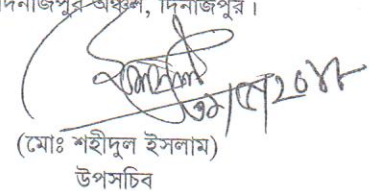 দিনাজপুর অঞ্চল, দিনাজপুর।
(মোঃ শহীদুল ইসলাম)
উপসচিব